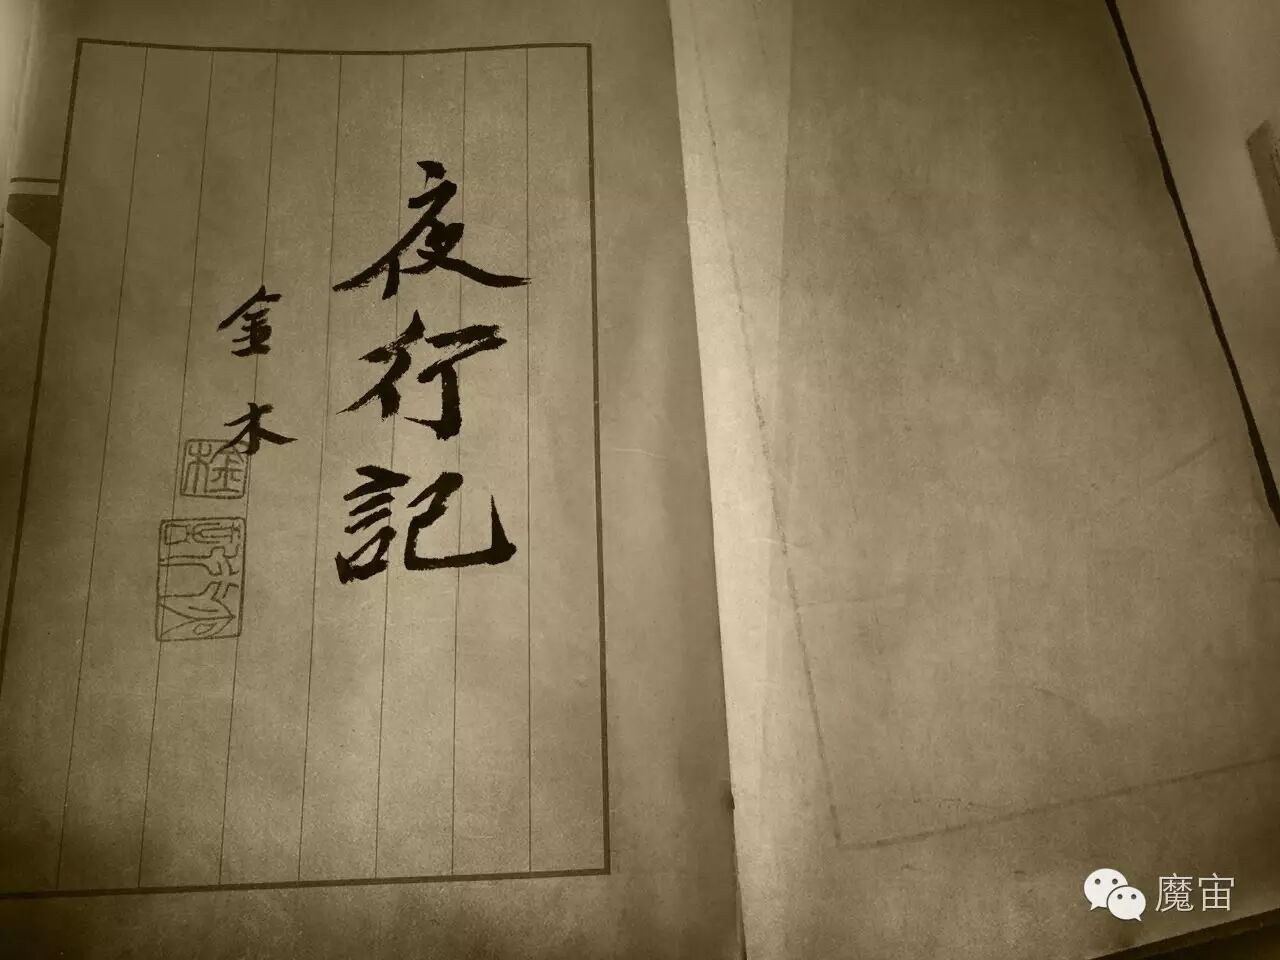 夜行記
金木
魔宙